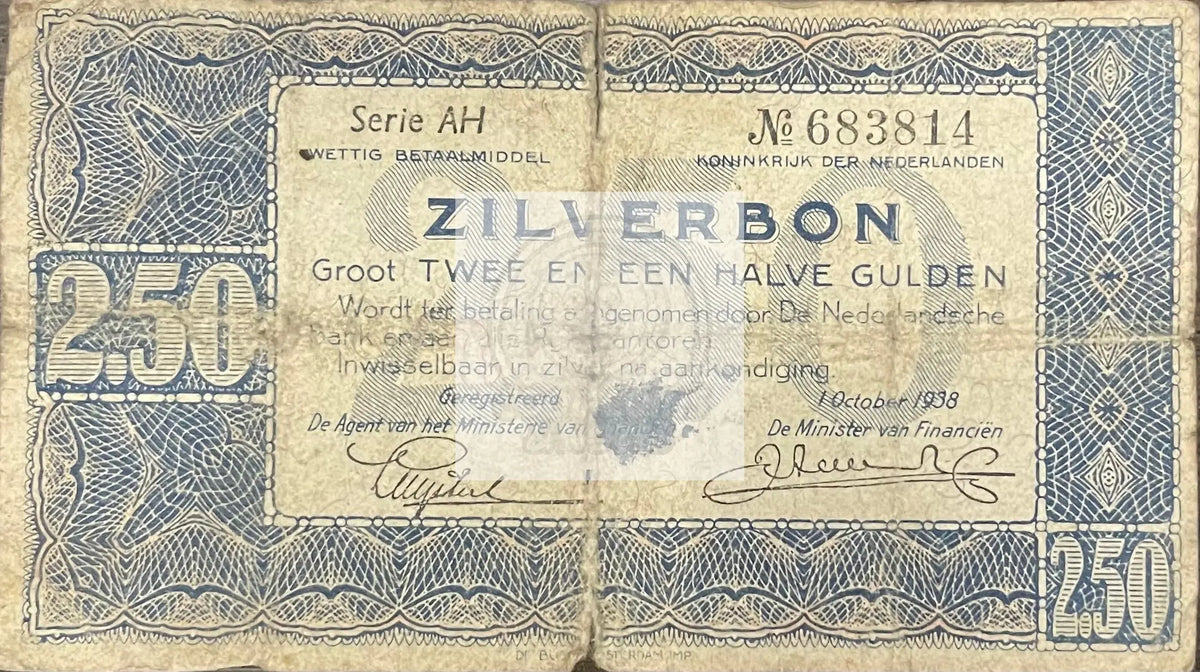 Serie AH
№ 683814
WETTIG BETAALMIDDEL
KONINKRIJK DER NEDERLANDEN
ZILVERBON
Groot TWEE EN EEN HALVE GULDEN
Wordt ter betaling aangenomen door De Nederlandsche
Bank en aan alle Rijkskantoren.
Inwisselbaar in zilver na aankondiging.
Geregistreerd
1 October 1938
De Agent van het Ministerie van
De Minister van Financiën
2.50
2.50
2.50